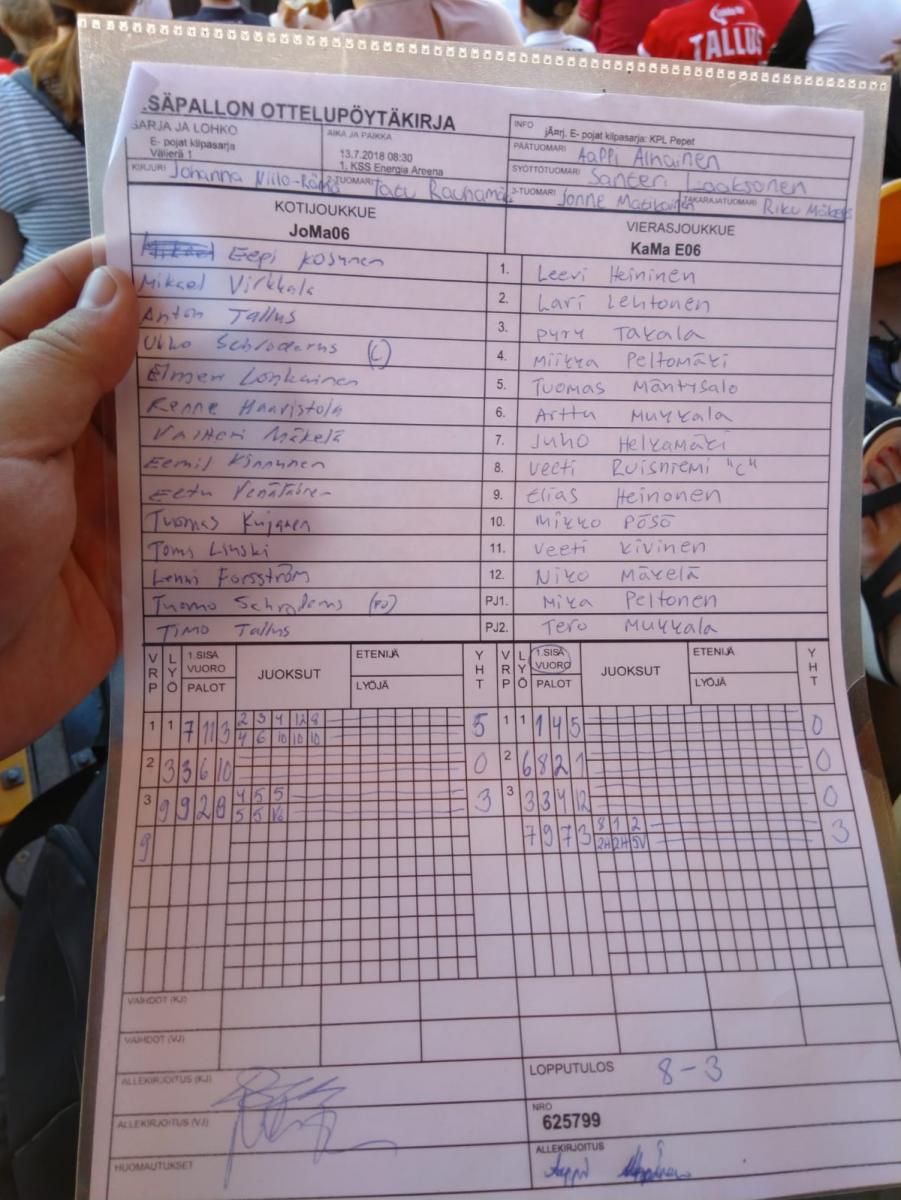 TALLUS
SÄPALLON OTTELUPÖYTÄKIRJA
SARJA JA LOHKO
E- pojat kilpasarja
Välierä 1
AIKA JA PAIKKA
13.7.2018 08:30
1. KSS Energia Areena
INFO
jÄ¤rj. E- pojat kilpasarja: KPL Pepet
PÄÄTUOMARI Aappi Alhainen
SYÖTTÖTUOMARI Santeri Laaksonen
KIRJURI Johanna Niilo-Rämä 2-TUOMARI Tatu Rauhamäki 3-TUOMARI Jonne Matikainen TAKARAJATUOMARI Riku Mäkelä
KOTIJOUKKUE
JoMa06
VIERASJOUKKUE
KaMa E06
Eepi Kosunen 1. Leevi Heininen
Mikael Virkkala 2. Lari Lehtonen
Anton Tallus 3. Pyry Takala
Ukko Schroderus (C) 4. Miikka Peltomäki
Elmeri Lonkainen 5. Tuomas Mäntysalo
Renne Haaristola 6. Arttu Mukkala
Valtteri Mäkelä 7. Juho Helkamäki
Eemil Kinnunen 8. Veeti Ruisniemi "C"
Eetu Venäläinen 9. Elias Heinonen
Tuomas Kujanen 10. Mikko Pösö
Tomi Linski 11. Veeti Kivinen
Lenni Forsström 12. Niko Mäkelä
Tuomo Schroderus PJ1. Mika Peltonen
Timo Tallus PJ2. Tero Mukkala
VRP LYÖ 1.SISÄ VUORO PALOT JUOKSUT ETENIJÄ LYÖJÄ YHT VRP LYÖ 1.SISÄ VUORO PALOT JUOKSUT ETENIJÄ LYÖJÄ YHT
1 1 7 11 3 2 3 4 12 8 5 1 1 1 4 5 0
4 6 10 10 10
2 3 3 6 10 0 2 6 8 2 1 0
3 9 9 2 8 4 5 5 3 3 3 3 4 12 0
5 5
9 7 9 7 3 8 1 2 3
2H 2H 5V
VAIHDOT (KJ)
VAIHDOT (VJ)
ALLEKIRJOITUS (KJ)
LOPPUTULOS 8-3
ALLEKIRJOITUS (VJ)
NRO
625799
HUOMAUTUKSET
ALLEKIRJOITUS